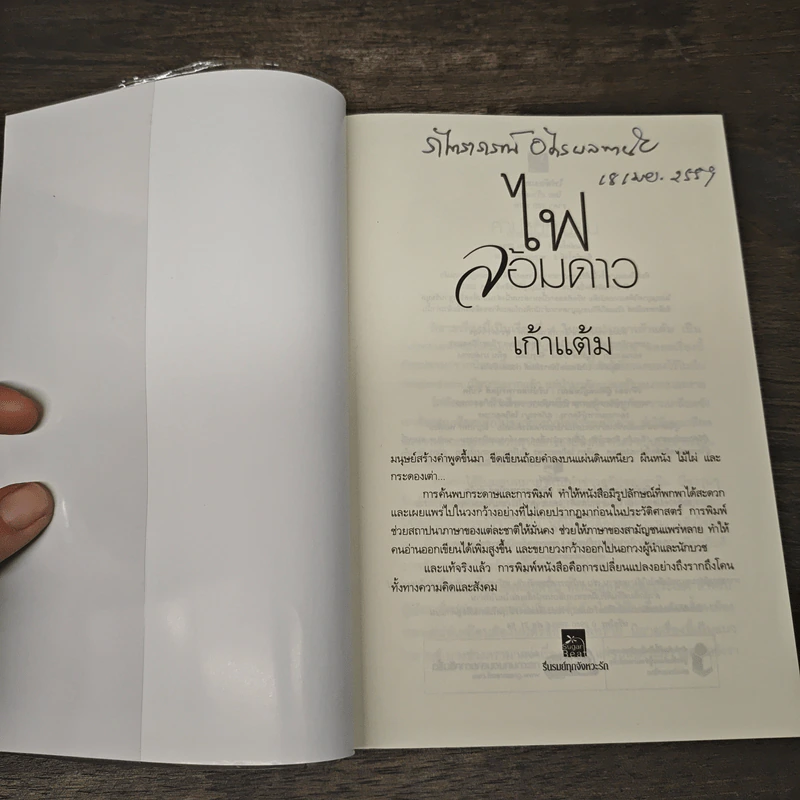 18 เมย. 2559
ไฟ
ล้อมดาว
เก้าแต้ม
มนุษย์สร้างคำพูดขึ้นมา ขีดเขียนถ้อยคำลงบนแผ่นดินเหนียว ผืนหนัง ไม้ไผ่ และ
กระดองเต่า...
การค้นพบกระดาษและการพิมพ์ ทำให้หนังสือมีรูปลักษณ์ที่พกพาได้สะดวก
และเผยแพร่ไปในวงกว้างอย่างที่ไม่เคยปรากฏมาก่อนในประวัติศาสตร์ การพิมพ์
ช่วยสถาปนาภาษาของแต่ละชาติให้มั่นคง ช่วยให้ภาษาของสามัญชนแพร่หลาย ทำให้
คนอ่านออกเขียนได้เพิ่มสูงขึ้น และขยายวงกว้างออกไปนอกวงผู้นำและนักบวช
และแท้จริงแล้ว การพิมพ์หนังสือคือการเปลี่ยนแปลงอย่างถึงรากถึงโคน
ทั้งทางความคิดและสังคม
Sugar
Beat
รื่นรมย์ทุกจังหวะรัก